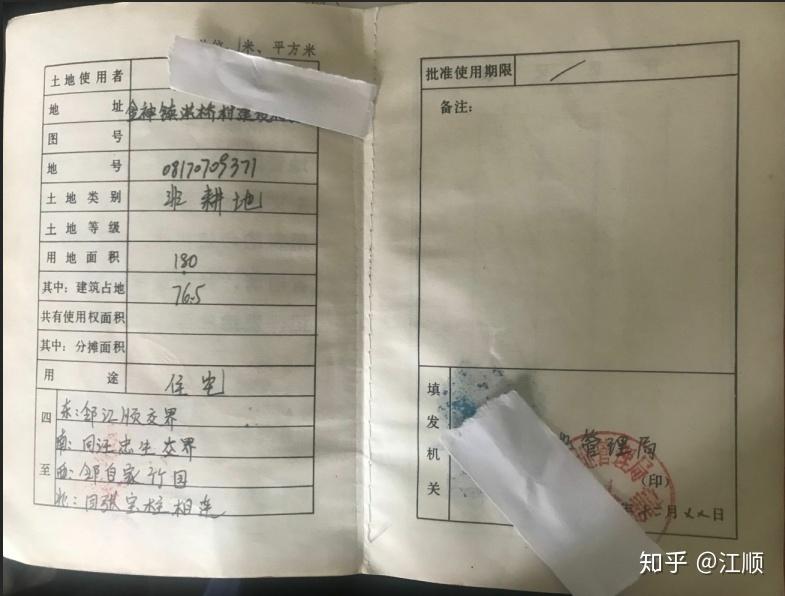 米、平方米
土地使用者
地址 金神镇洪桥村
图号
地号 08170709371
土地类别 非耕地
土地等级
用地面积 180
其中：建筑占地 76.5
共有使用权面积
其中：分摊面积
用途 住宅
四至
东：邹江顺交界
南：同汪忠生交界
西：邹自家竹园
北：同张宝柱相连
批准使用期限
备注：
填发机关
管理局
（印）
月 日
知乎 @江顺